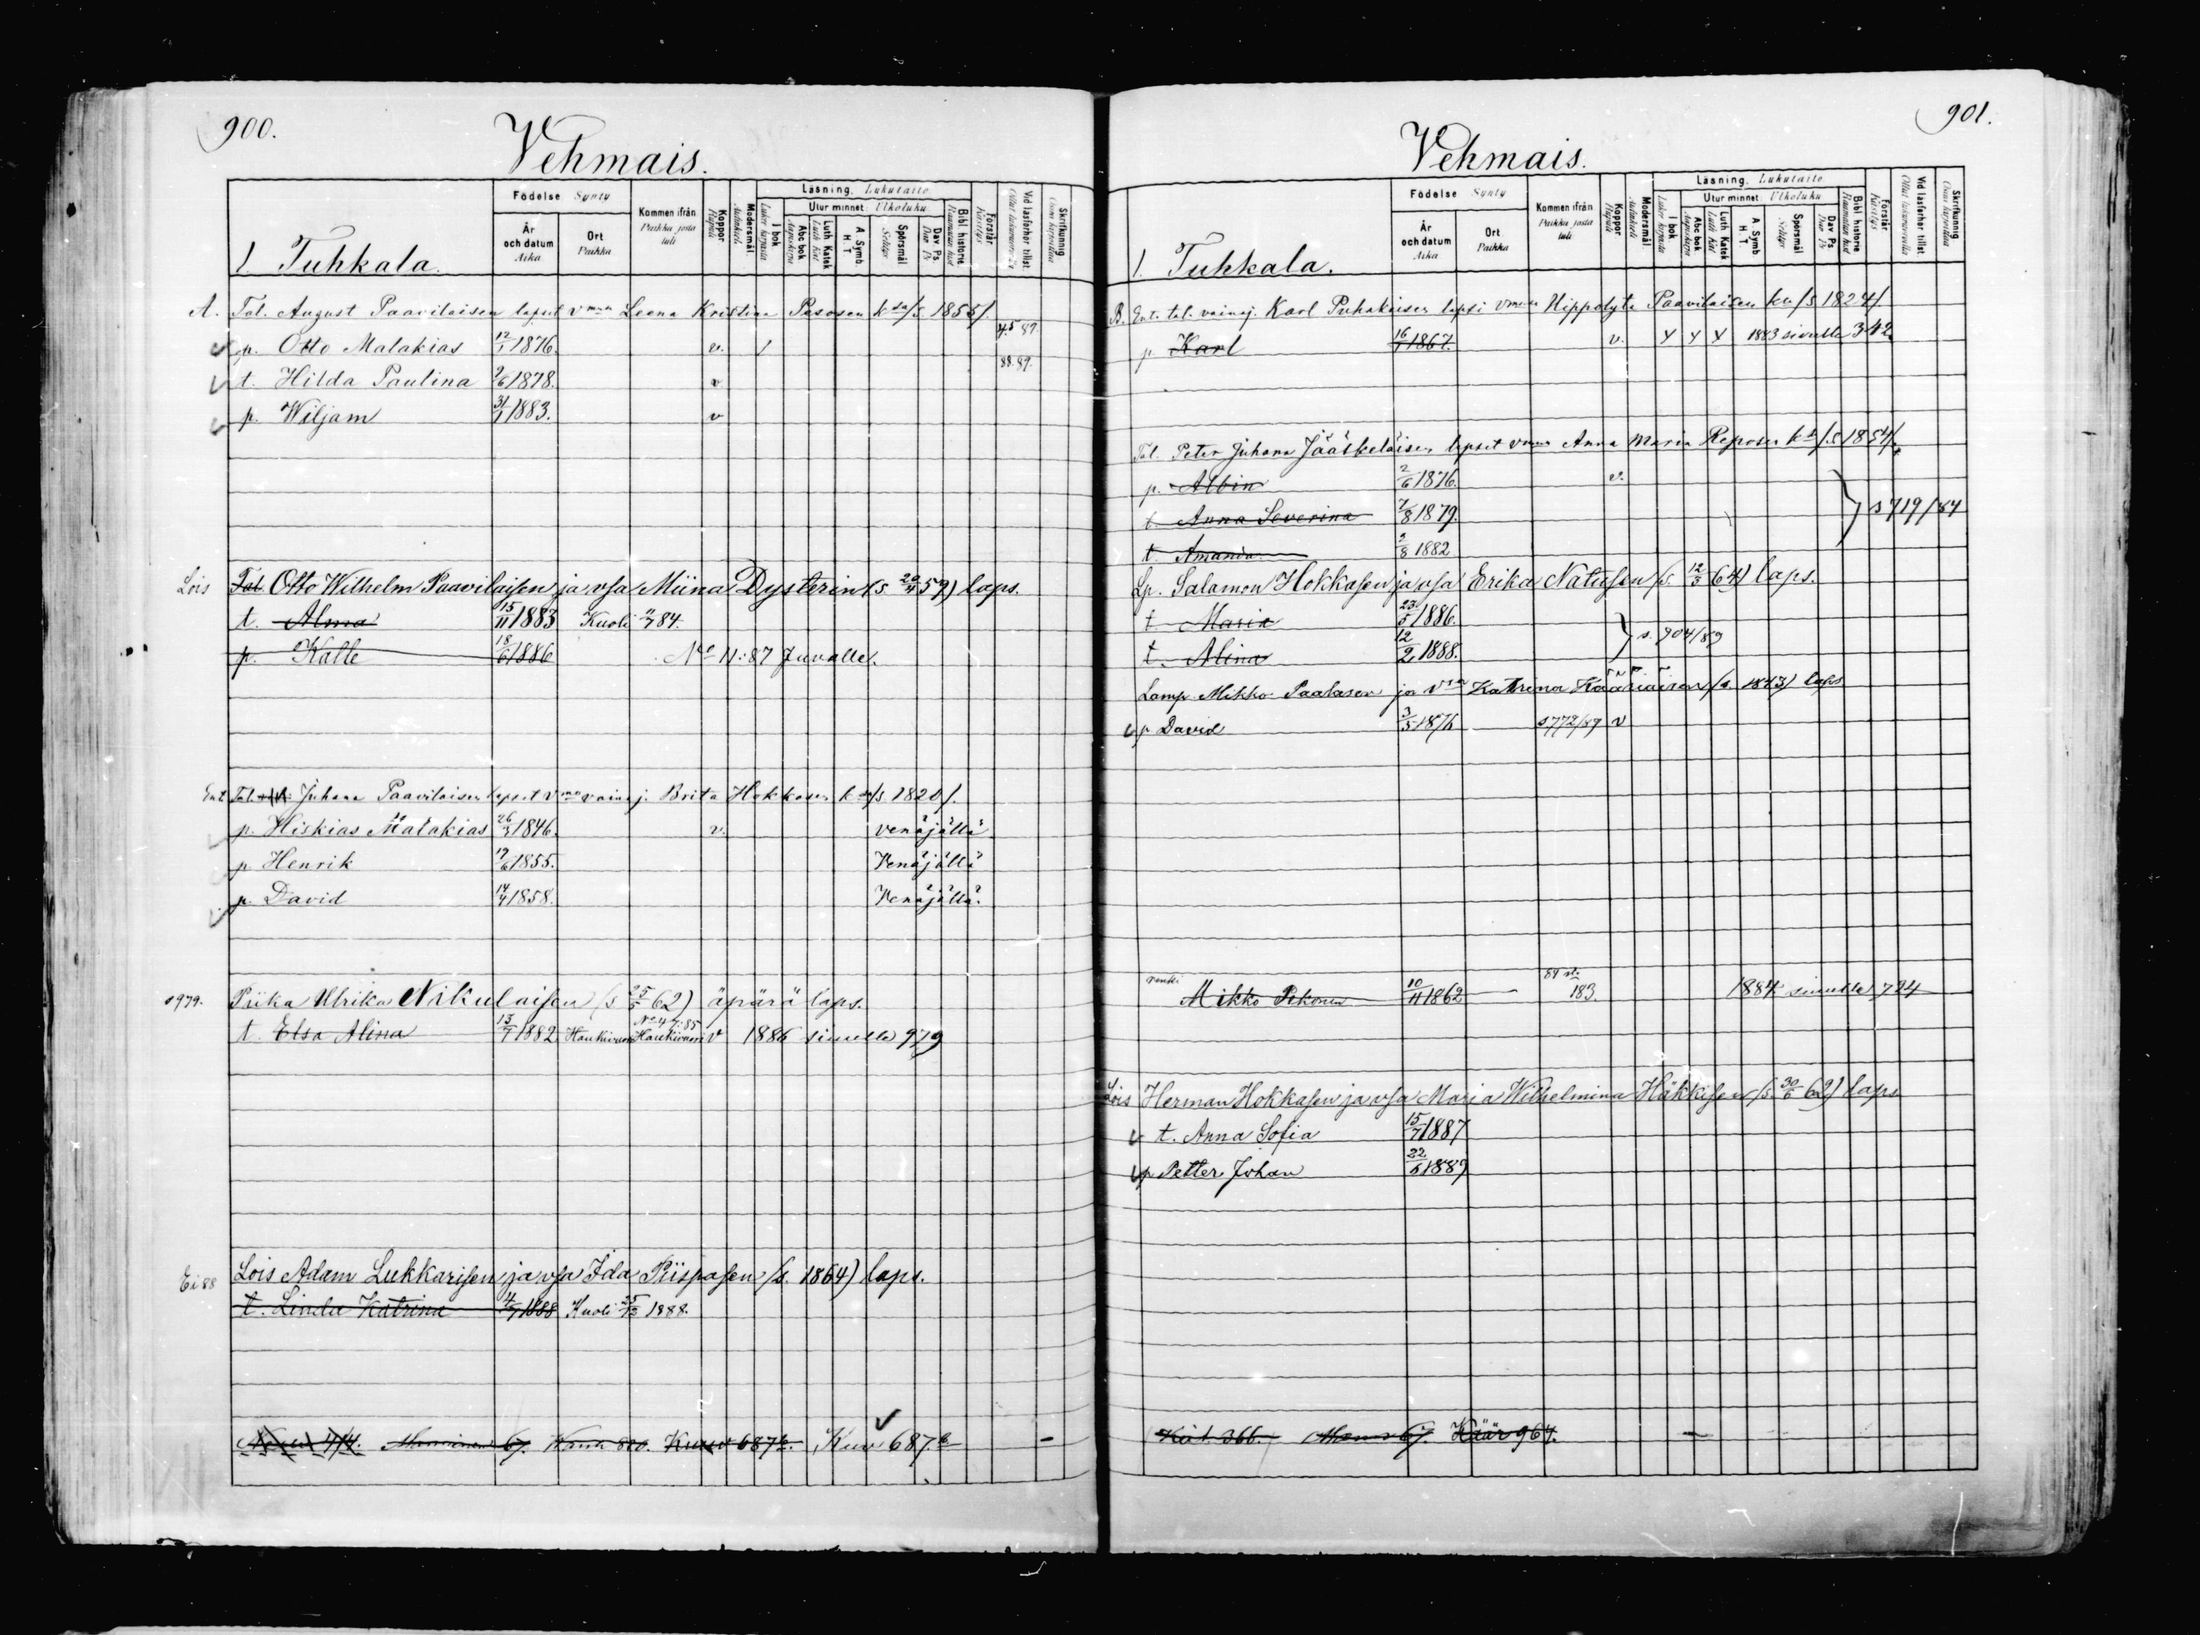 900.
Vehmais.
1. Tuhkala.
Födelse Synty
År och datum Aika
Ort Paikka
Kommen ifrån Paikka josta tuli
Koppor Rupuli
Modersmål Äidinkieli
Läsning. Lukutaito.
I bok
Utur minnet. Ulkoluku
Abc bok
Luth. Katek
A. Symb. H. T
Spörsmål
Dav. Ps
Bibl. historie
Förstår
Vid läsförhör tillst
Skrifkunnig
A. Tal. August Paavilaisen lapset vmon Leena Kristina Pasosen ksa /s 1855/
p. Otto Malakias 12/1 1876. v. / 45 87.
88.89.
t. Hilda Paulina 2/6 1878. v
p. Wiljam 31/1 1883. v
Lois Tal Otto Wilhelm Paavilaisen ja vsa Miina Dysterin (s 20/4 59) laps.
t. Alma 15/11 1883 Kuoli 84.
p. Kalle 18/6 1886 No 11:87 Juvalle.
Ent Tal. Juhana Paavilaisen lapset vmo vainaj. Brita Hokkasen ksa /s 1820/.
p. Hiskias Malakias 26/3 1846. v. venäjällä
p. Henrik 19/6 1855. Venäjällä
p. David 14/4 1858. Venäjällä.
1979. Piika Ulrika Nikulaisen (s 25/5 62) äpärä laps.
t. Elsa Alina 13/7 1882 Haukivuori No 47:85 Haukivuori v 1886 sivulle 979
Ei 88 Lois Adam Lukkarisen ja vsa Ida Piispasen (s. 1864) laps.
t. Linda Katrina 4/7 1888 Kuoli 25/12 1888.
67. 687 b. Kuv 687 b
901.
Vehmais.
1. Tuhkala.
Födelse Synty
År och datum Aika
Ort Paikka
Kommen ifrån Paikka josta tuli
Koppor Rupuli
Modersmål Äidinkieli
Läsning. Lukutaito
I bok
Utur minnet Ulkoluku
Abc bok
Luth. Kat
A Symb H. T
Spörsmål
Dav. Ps
Bibl historie
Förstår
Vid läsförhör tillst
Skrifkunnig
B. Ent. tal. vainaj. Karl Puhakaisen lapsi vmon Hippolyta Paavilaisen kn /s 1824/.
p Karl 16/1 1867. v. x x x 1883 sivulle 342
Tal. Peter Juhana Jääskeläisen lapset vmon Anna Maria Reposen ks /s 1854/.
p. Albin 2/6 1876. v.
t. Anna Severina 7/8 1879. } s 719/84
t. Amanda 2/8 1882
Lp. Salamon Hokkasen ja vsa Erika Natusen (s. 12/3 64) laps.
t Maria 23/5 1886.
t. Alina 12/2 1888. } s. 904/89
Lamp. Mikko Paalasen ja vsa Katrina Kääriäisen (s. 1843) laps
p David 3/5 1876 s 772/89 v
renki Mikko Pekonen 10/11 1862 84 st. 183. 1884 sivulle 724
Lois Herman Hokkasen ja vsa Maria Wilhelmina Häkkisen (s. 30/6 62) laps
t. Anna Sofia 15/7 1887
p Petter Johan 22/6 1889
366. 67. Käär 964.